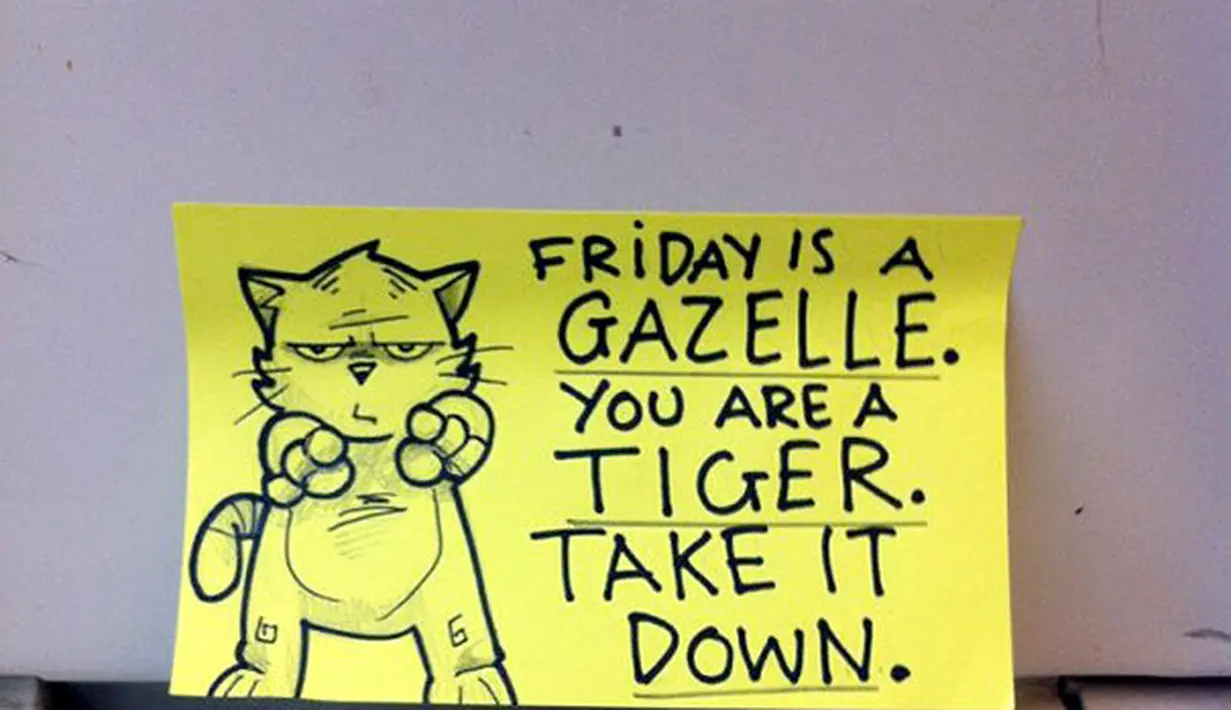 FRiDAY IS A
GAZELLE.
YOU ARE A
TIGER.
TAKE IT
DOWN.